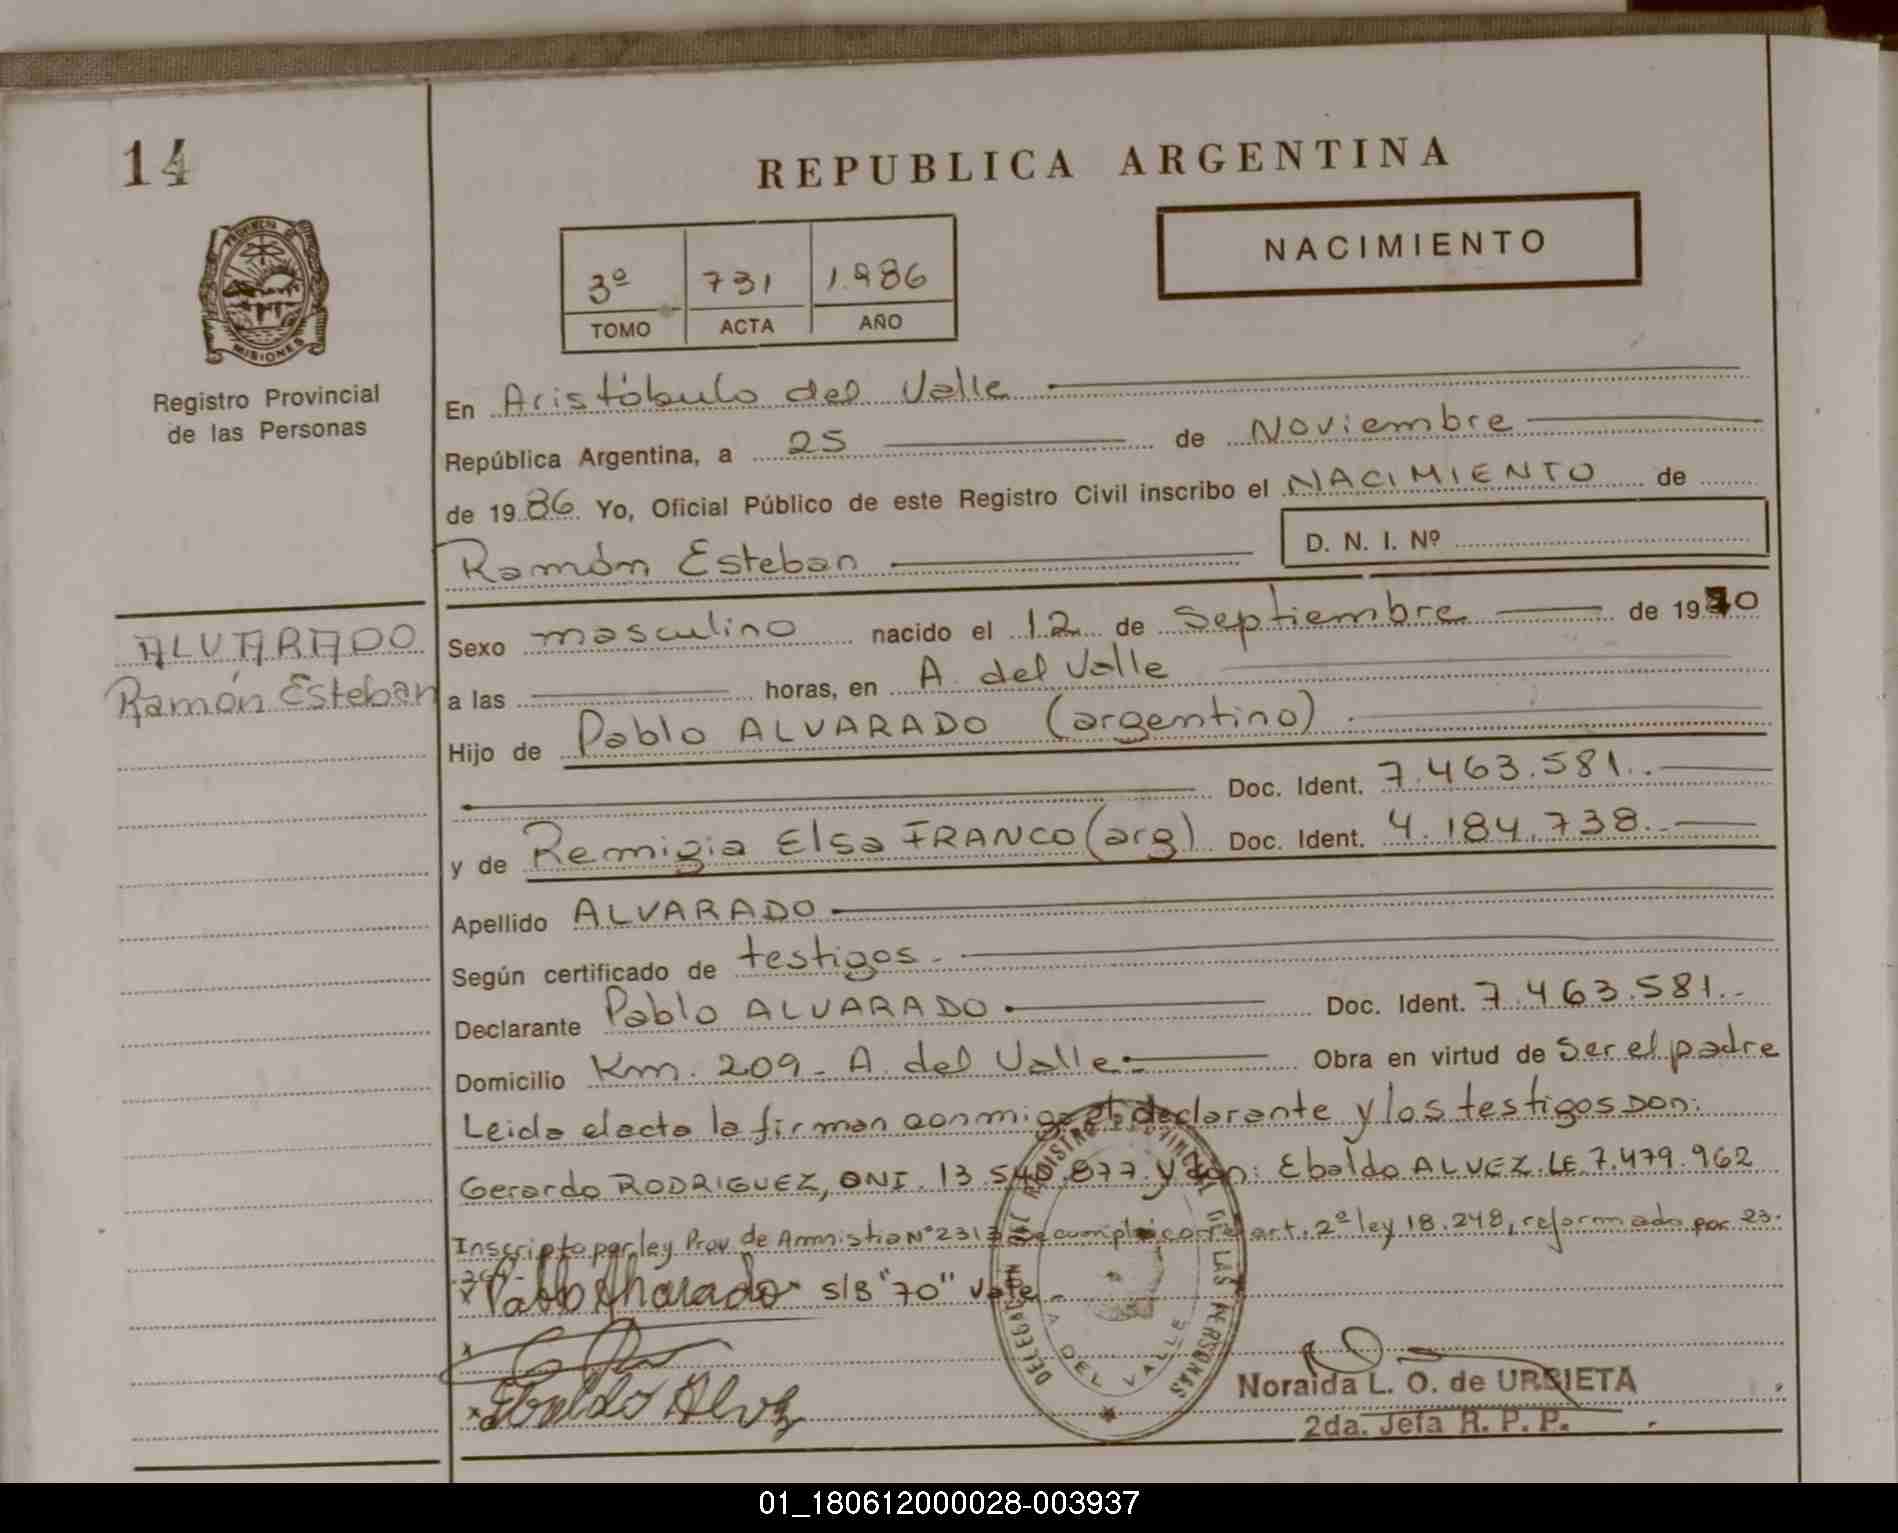 14
REPUBLICA ARGENTINA
NACIMIENTO
3º 731 1.986
TOMO ACTA AÑO
PROVINCIA DE
MISIONES
Registro Provincial
de las Personas
En Aristóbulo del Valle
República Argentina, a 25 de Noviembre
de 1986 Yo, Oficial Público de este Registro Civil inscribo el NACIMIENTO de
D. N. I. Nº
Ramón Esteban
ALVARADO
Ramón Esteban
Sexo masculino nacido el 12 de Septiembre de 1970
a las horas, en A. del Valle
Hijo de Pablo ALVARADO (argentino)
Doc. Ident. 7.463.581.-
y de Remigia Elsa FRANCO (arg) Doc. Ident. 4.184.738.-
Apellido ALVARADO
Según certificado de testigos.-
Declarante Pablo ALVARADO Doc. Ident. 7.463.581.-
Domicilio Km. 209 - A. del Valle.- Obra en virtud de ser el padre
Leida elacta la firman conmigo el declarante y los testigos Don:
Gerardo RODRIGUEZ, DNI. 13.540.877. y don: Ebaldo ALVEZ. LE. 7.479.962
Inscripto por ley Prov. de Amnistia Nº 2313 Se cumple con el art. 2º ley 18.248, reformado por 23.
Pablo Alvarado s/B "70" Vale.-
Ebaldo Alvez
DELEGACION DEL REGISTRO PROVINCIAL DE LAS PERSONAS
A. DEL VALLE
Noraida L. O. de URBIETA
2da. Jefa R. P. P.
01_180612000028-003937